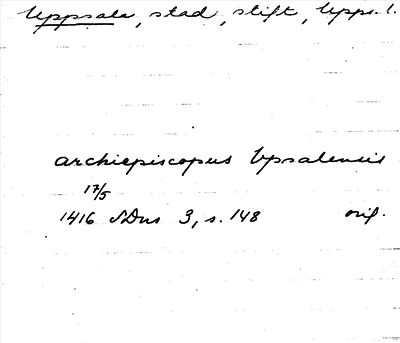 Uppsala, stad, stift, Upps. l.
archiepiscopus Vpsalensis
17/5
1416 SDns 3, s. 148 orig.